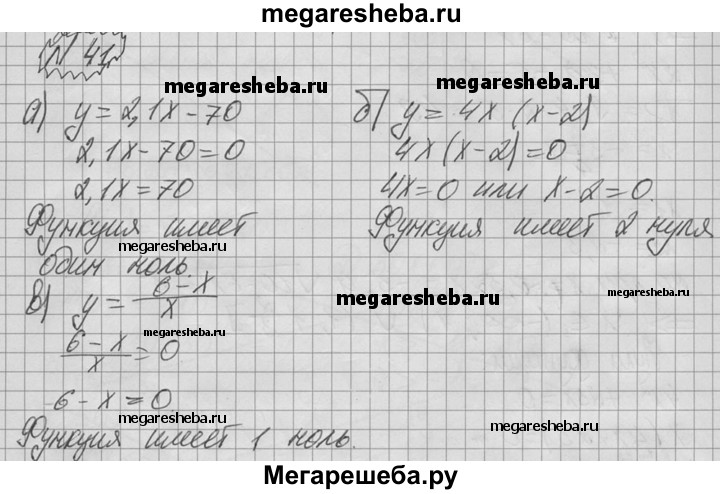 megaresheba.ru
№ 41
megaresheba.ru
megaresheba.ru
а) y = 2,1x - 70
2,1x - 70 = 0
2,1x = 70
Функция имеет
megaresheba.ru
один ноль.
б) y = 4x (x-2)
4x (x-2) = 0
4x = 0 или x - 2 = 0.
Функция имеет 2 нуля
в) y = 6-x / x
megaresheba.ru
megaresheba.ru
6-x / x = 0
6 - x = 0
megaresheba.ru
megaresheba.ru
Функция имеет 1 ноль.
Мегарешеба.ру